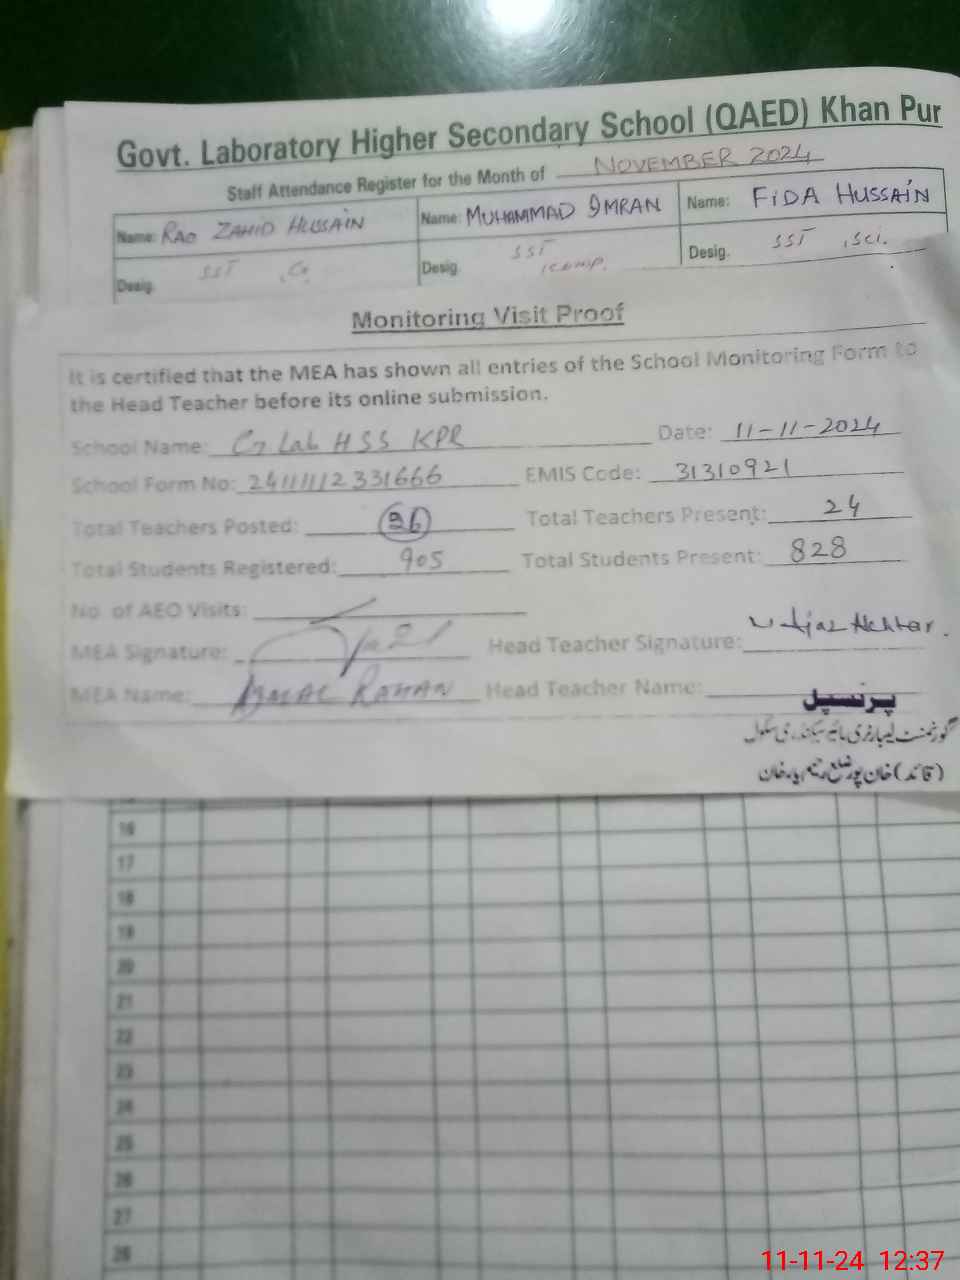 Govt. Laboratory Higher Secondary School (QAED) Khan Pur
Staff Attendance Register for the Month of NOVEMBER 2024
Name: RAO ZAHID HUSSAIN Name: MUHAMMAD IMRAN Name: FIDA HUSSAIN
Desig. SST Desig. SST Desig. SST , Sci.
(comp.
Monitoring Visit Proof
It is certified that the MEA has shown all entries of the School Monitoring Form to
the Head Teacher before its online submission.
School Name: G Lab HSS KPR Date: 11-11-2024
School Form No: 2411112331666 EMIS Code: 31310921
Total Teachers Posted: 26 Total Teachers Present: 24
Total Students Registered: 905 Total Students Present: 828
No. of AEO Visits:
MEA Signature: Head Teacher Signature: Akhtar.
MEA Name: Head Teacher Name:
پرنسپل
گورنمنٹ لیبارٹری ہائیر سیکنڈری سکول
(قائد) خان پور ضلع رحیم یار خان
16
17
18
19
20
21
22
23
24
25
26
27
28
11-11-24 12:37